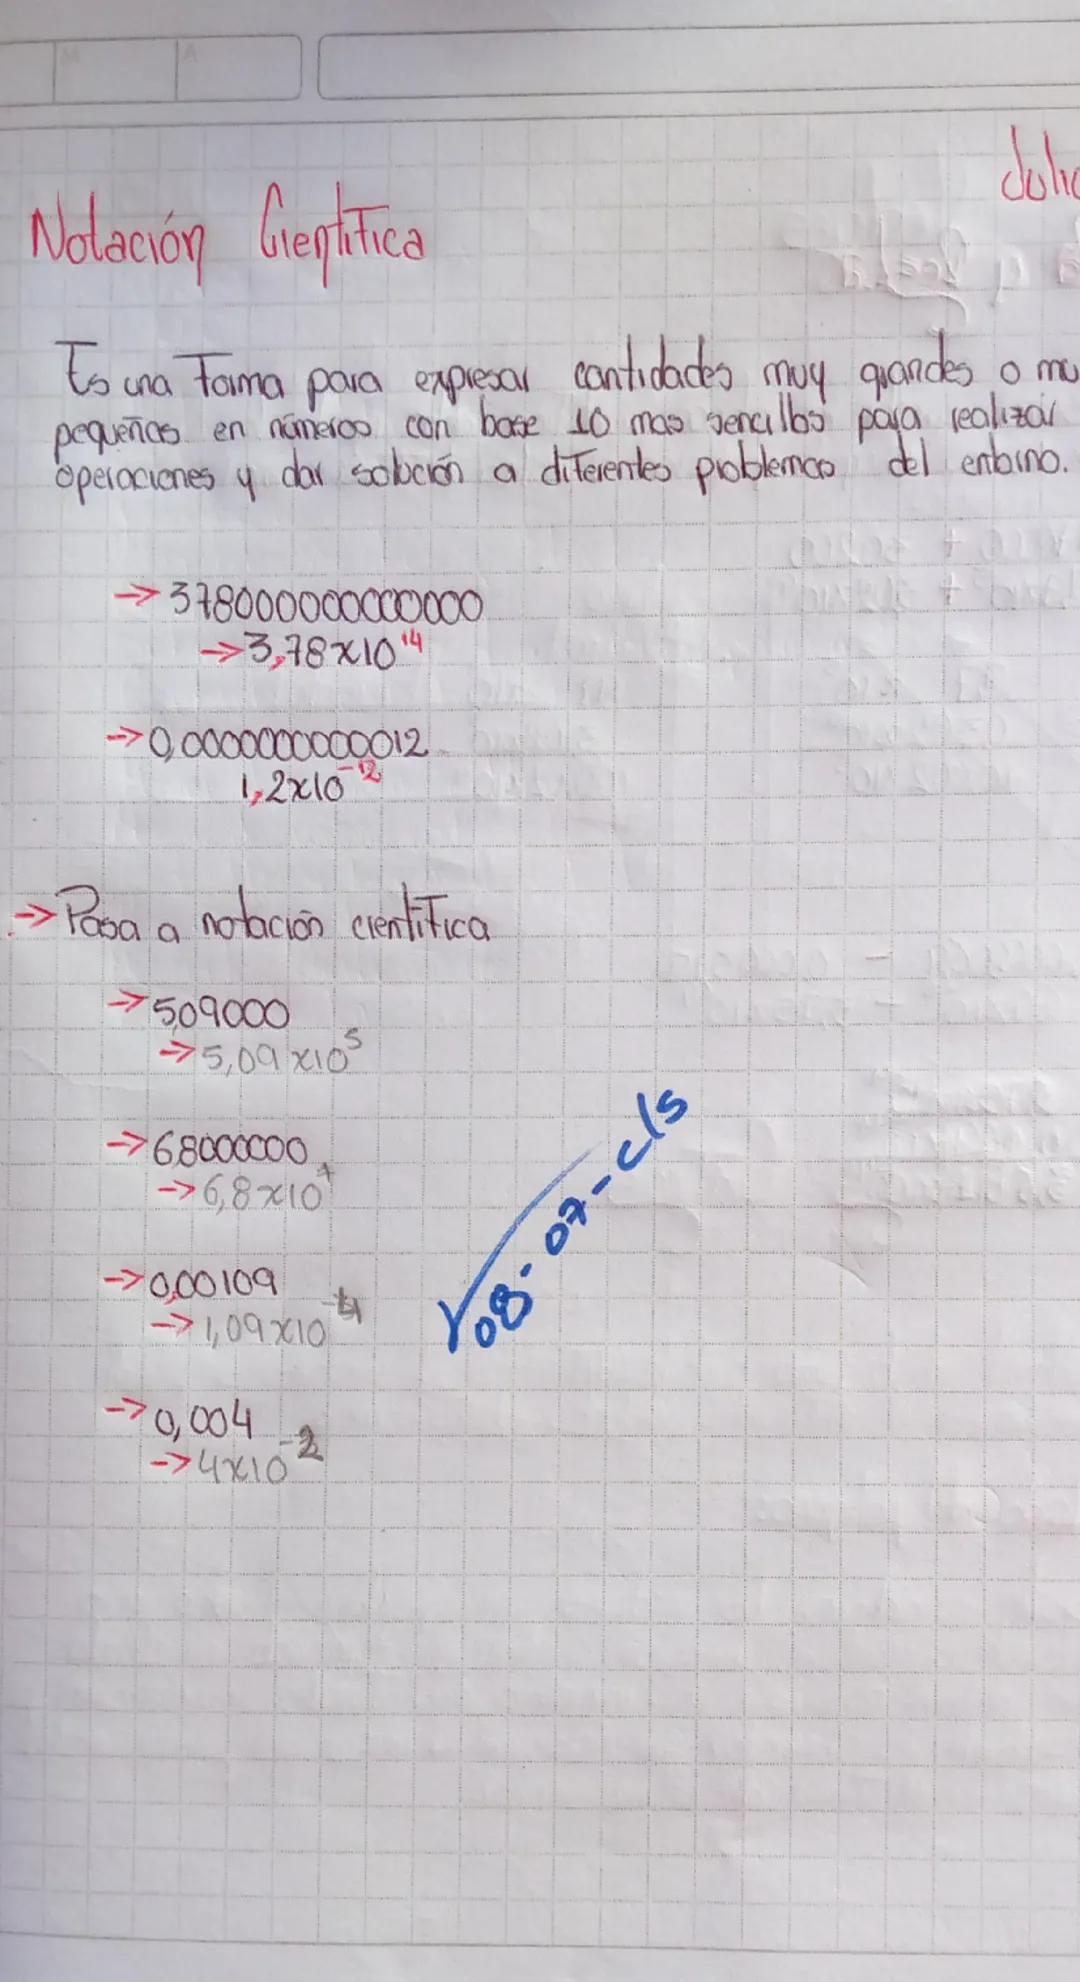 M A
Julio
Notación Científica
Es una forma para expresar cantidades muy grandes o mu
pequeñas en números con base 10 mas sencillos para realizar
operaciones y dar solución a diferentes problemas del entorno.
→ 378000000000000
→ 3,78x10¹⁴
→ 0,0000000000012
1,2x10⁻¹²
→ Pasa a notación científica
→ 509000
→ 5,09x10⁵
→ 68000000
→ 6,8x10⁷
→ 0,00109
→ 1,09x10⁻⁴
→ 0,004
→ 4x10⁻²
08-07-c/s